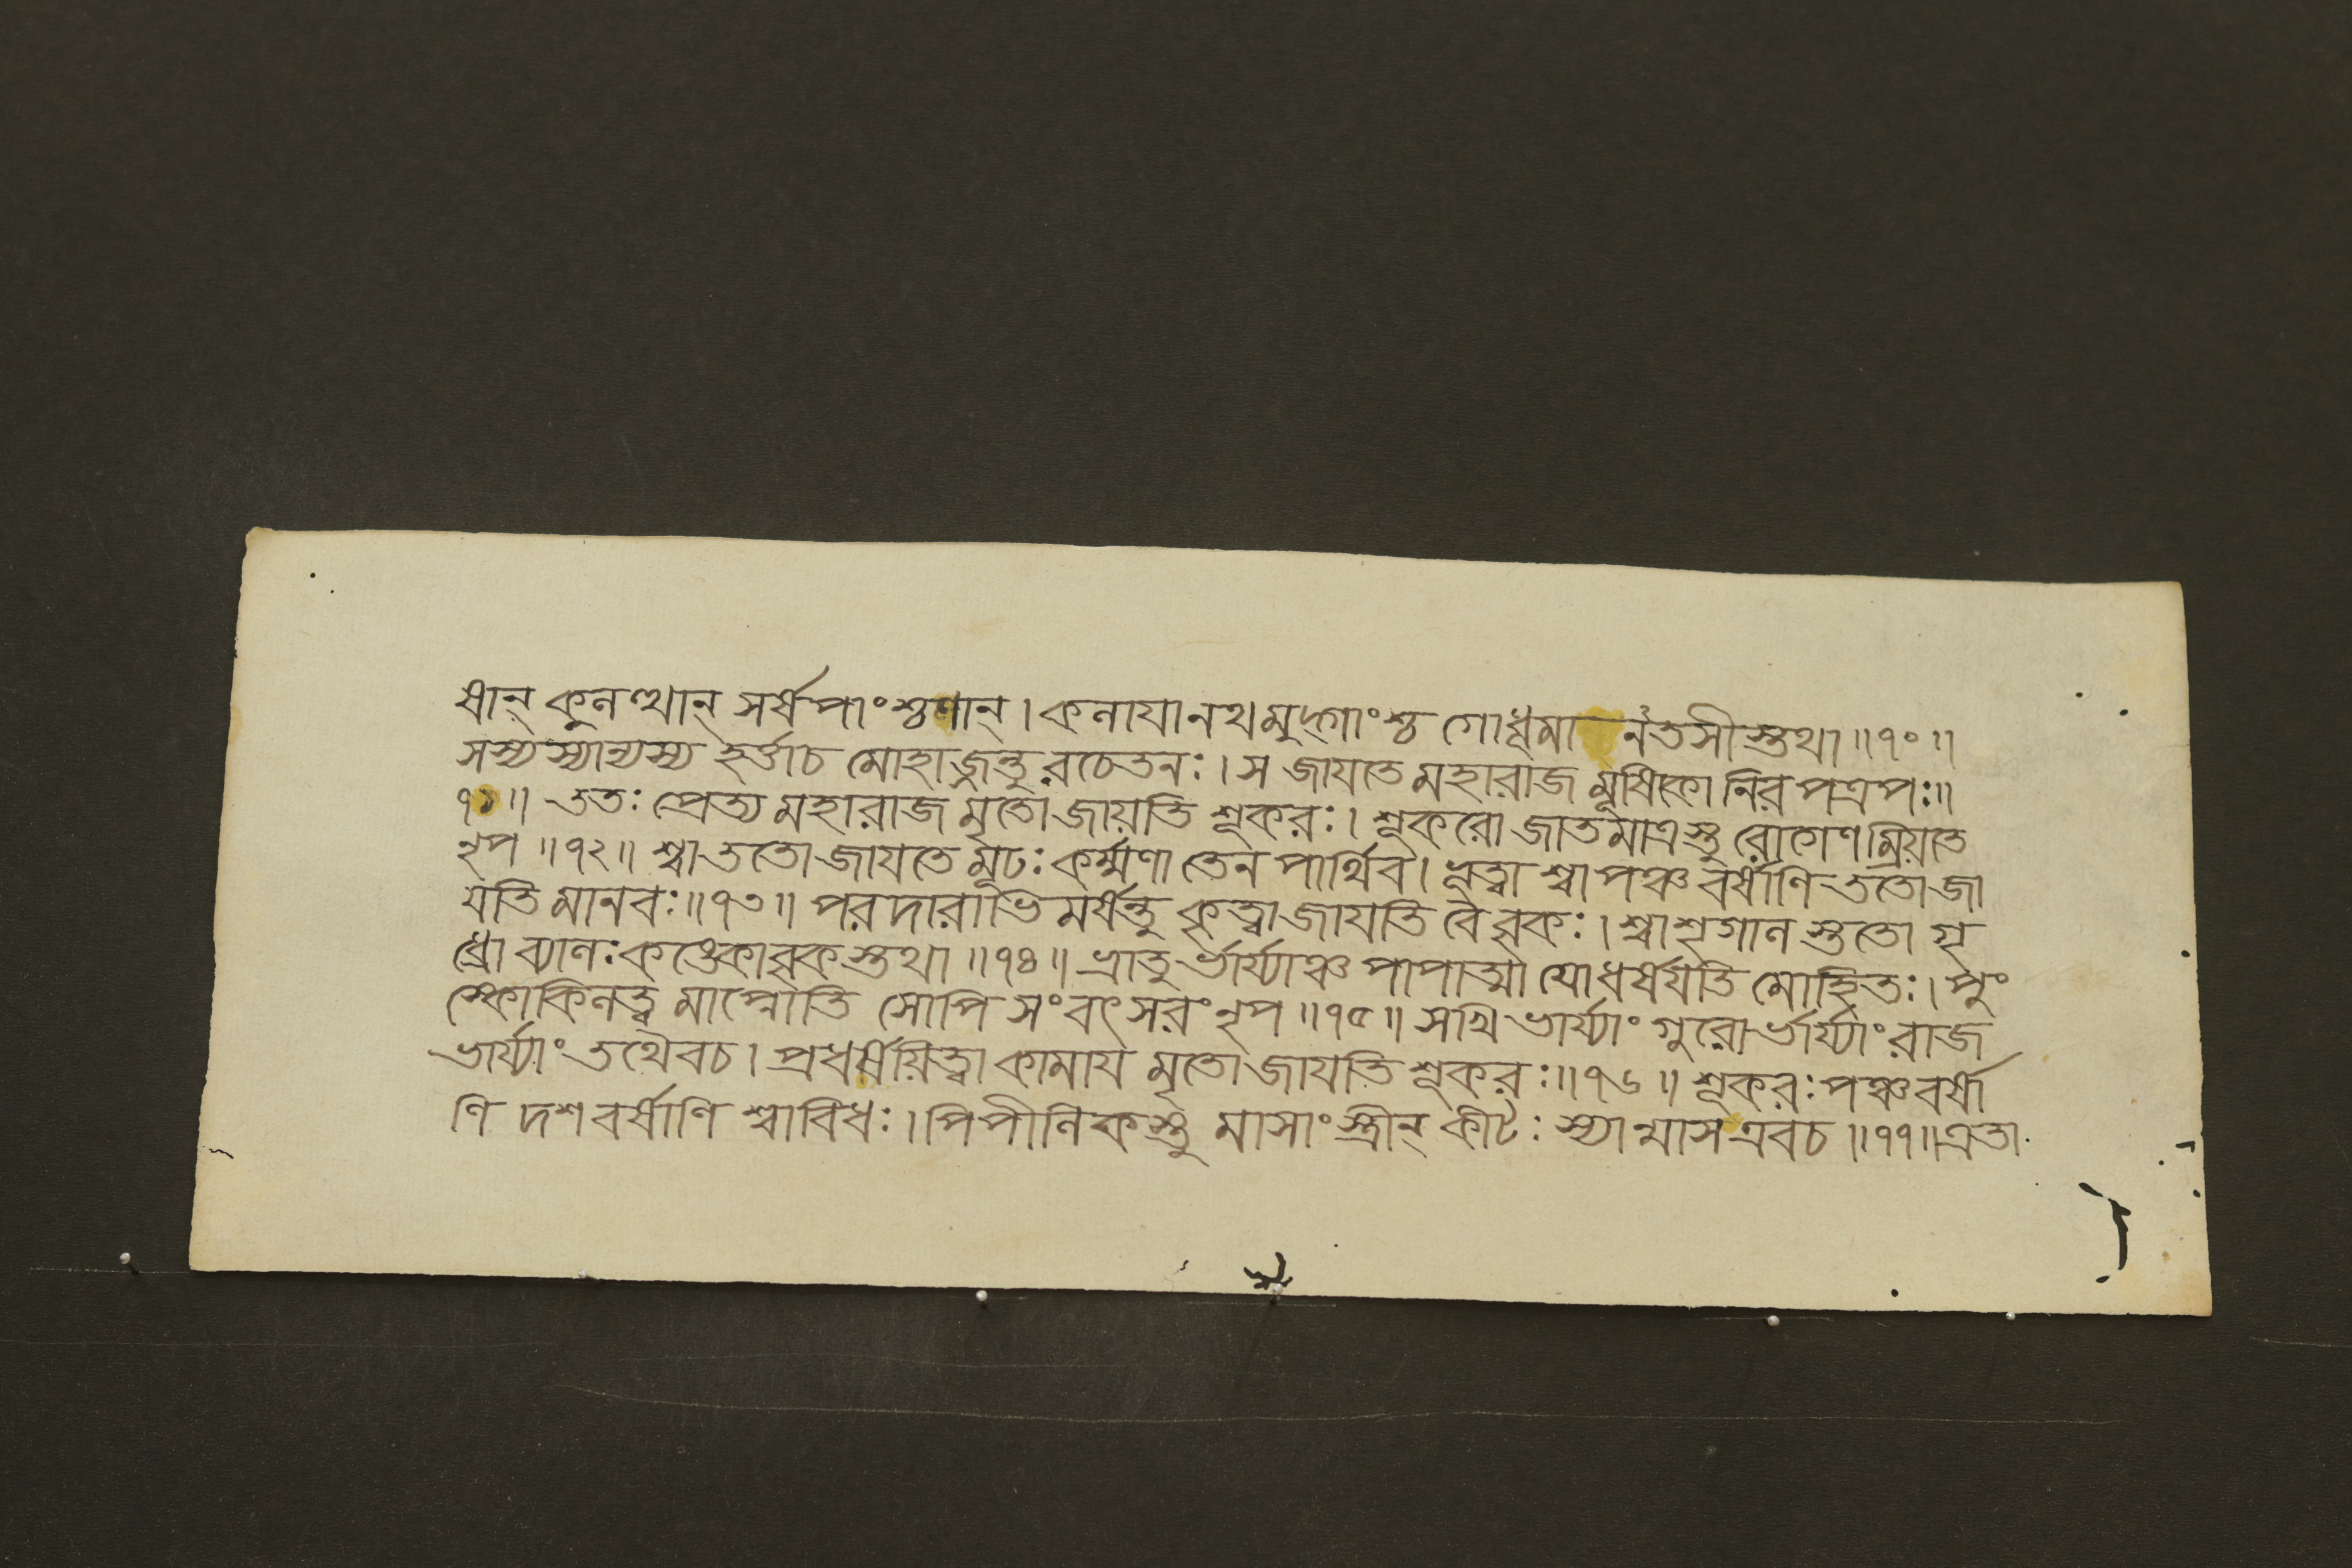 ষান্ কুলত্থান্ সর্ষপাংশ্চণান্। কলাযানথমুদ্গাংশ্চ গোধূমা নতসীস্তথা॥৭০॥
সস্যস্যান্যস্য হর্ত্তাচ মোহাজ্জন্তুরচেতনঃ। স জাযতে মহারাজ মূষিকো নিরপত্রপঃ॥
৭১॥ ততঃ প্রেত্য মহারাজ মৃতো জায়তি শূকরঃ। শূকরো জাতমাত্রস্তু রোগেণম্রিয়তে
নৃপ॥৭২॥ শ্বা ততো জাযতে মূঢঃ কর্ম্মণা তেন পার্থিব। ভূত্বা শ্বা পঞ্চবর্ষাণি ততো জা
যতি মানবঃ॥৭৩॥ পরদারাভিমর্ষন্তু কৃত্বা জাযতি বৈ বৃকঃ। শ্বাশৃগাল স্ততো গৃ
ধ্রো ব্যালঃ কঙ্কোবৃকস্তথা॥৭৪॥ ভ্রাতুর্ভার্য্যাঞ্চ পাপাত্মা যোধর্ষযতি মোহিতঃ। পুং
স্কোকিলত্ব মাপ্নোতি সোপি সংবৎসরং নৃপ॥৭৫॥ সখি ভার্য্যাং গুরোর্ভার্য্যাং রাজ
ভার্য্যাং তথৈবচ। প্রধর্ষয়িত্বা কামায মৃতো জাযতি শূকরঃ॥৭৬॥ শূকরঃ পঞ্চবর্ষা
ণি দশবর্ষাণি শ্বাবিধঃ। পিপীলিকস্তু মাসাংস্ত্রীন্ কীটঃ স্যান্মাসএবচ॥৭৭॥এতা